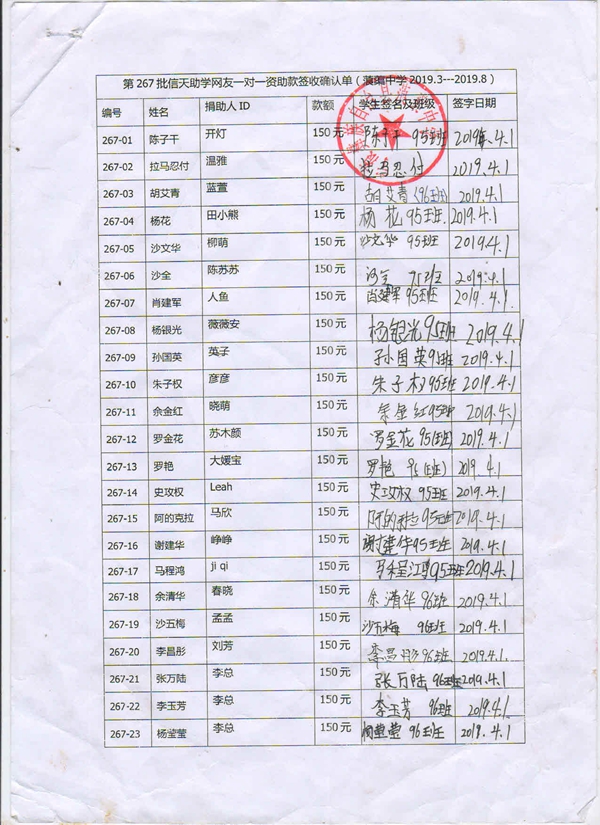 第 267 批信天助学网友一对一资助款签收确认单（蒗蕖中学 2019.3---2019.8）
编号 姓名 捐助人 ID 款额 学生签名及班级 签字日期
267-01 陈子干 开灯 150 元 陈子干 95班 2019.4.1
267-02 拉马忍付 温雅 150 元 拉马忍付 2019.4.1
267-03 胡艾青 蓝萱 150 元 胡艾青 (96班) 2019.4.1
267-04 杨花 田小熊 150 元 杨花 95班 2019.4.1
267-05 沙文华 柳萌 150 元 沙文华 95班 2019.4.1
267-06 沙全 陈苏苏 150 元 沙全 95班 2019.4.1
267-07 肖建军 人鱼 150 元 肖建军 95班 2019.4.1
267-08 杨银光 薇薇安 150 元 杨银光 95班 2019.4.1
267-09 孙国英 英子 150 元 孙国英 95班 2019.4.1
267-10 朱子权 彦彦 150 元 朱子权 95班 2019.4.1
267-11 余金红 晓萌 150 元 余金红 95班 2019.4.1
267-12 罗金花 苏木颜 150 元 罗金花 95班 2019.4.1
267-13 罗艳 大媛宝 150 元 罗艳 95班 2019.4.1
267-14 史玫权 Leah 150 元 史玫权 95班 2019.4.1
267-15 阿的克拉 马欣 150 元 95班 2019.4.1
267-16 谢建华 峥峥 150 元 谢建华 95班 2019.4.1
267-17 马程鸿 ji qi 150 元 马程鸿 95班 2019.4.1
267-18 余清华 春晓 150 元 余清华 96班 2019.4.1
267-19 沙五梅 孟孟 150 元 沙五梅 96班 2019.4.1
267-20 李昌彤 刘芳 150 元 李昌彤 96班 2019.4.1
267-21 张万陆 李总 150 元 张万陆 96班 2019.4.1
267-22 李玉芳 李总 150 元 李玉芳 96班 2019.4.1
267-23 杨莹莹 李总 150 元 杨莹莹 96班 2019.4.1